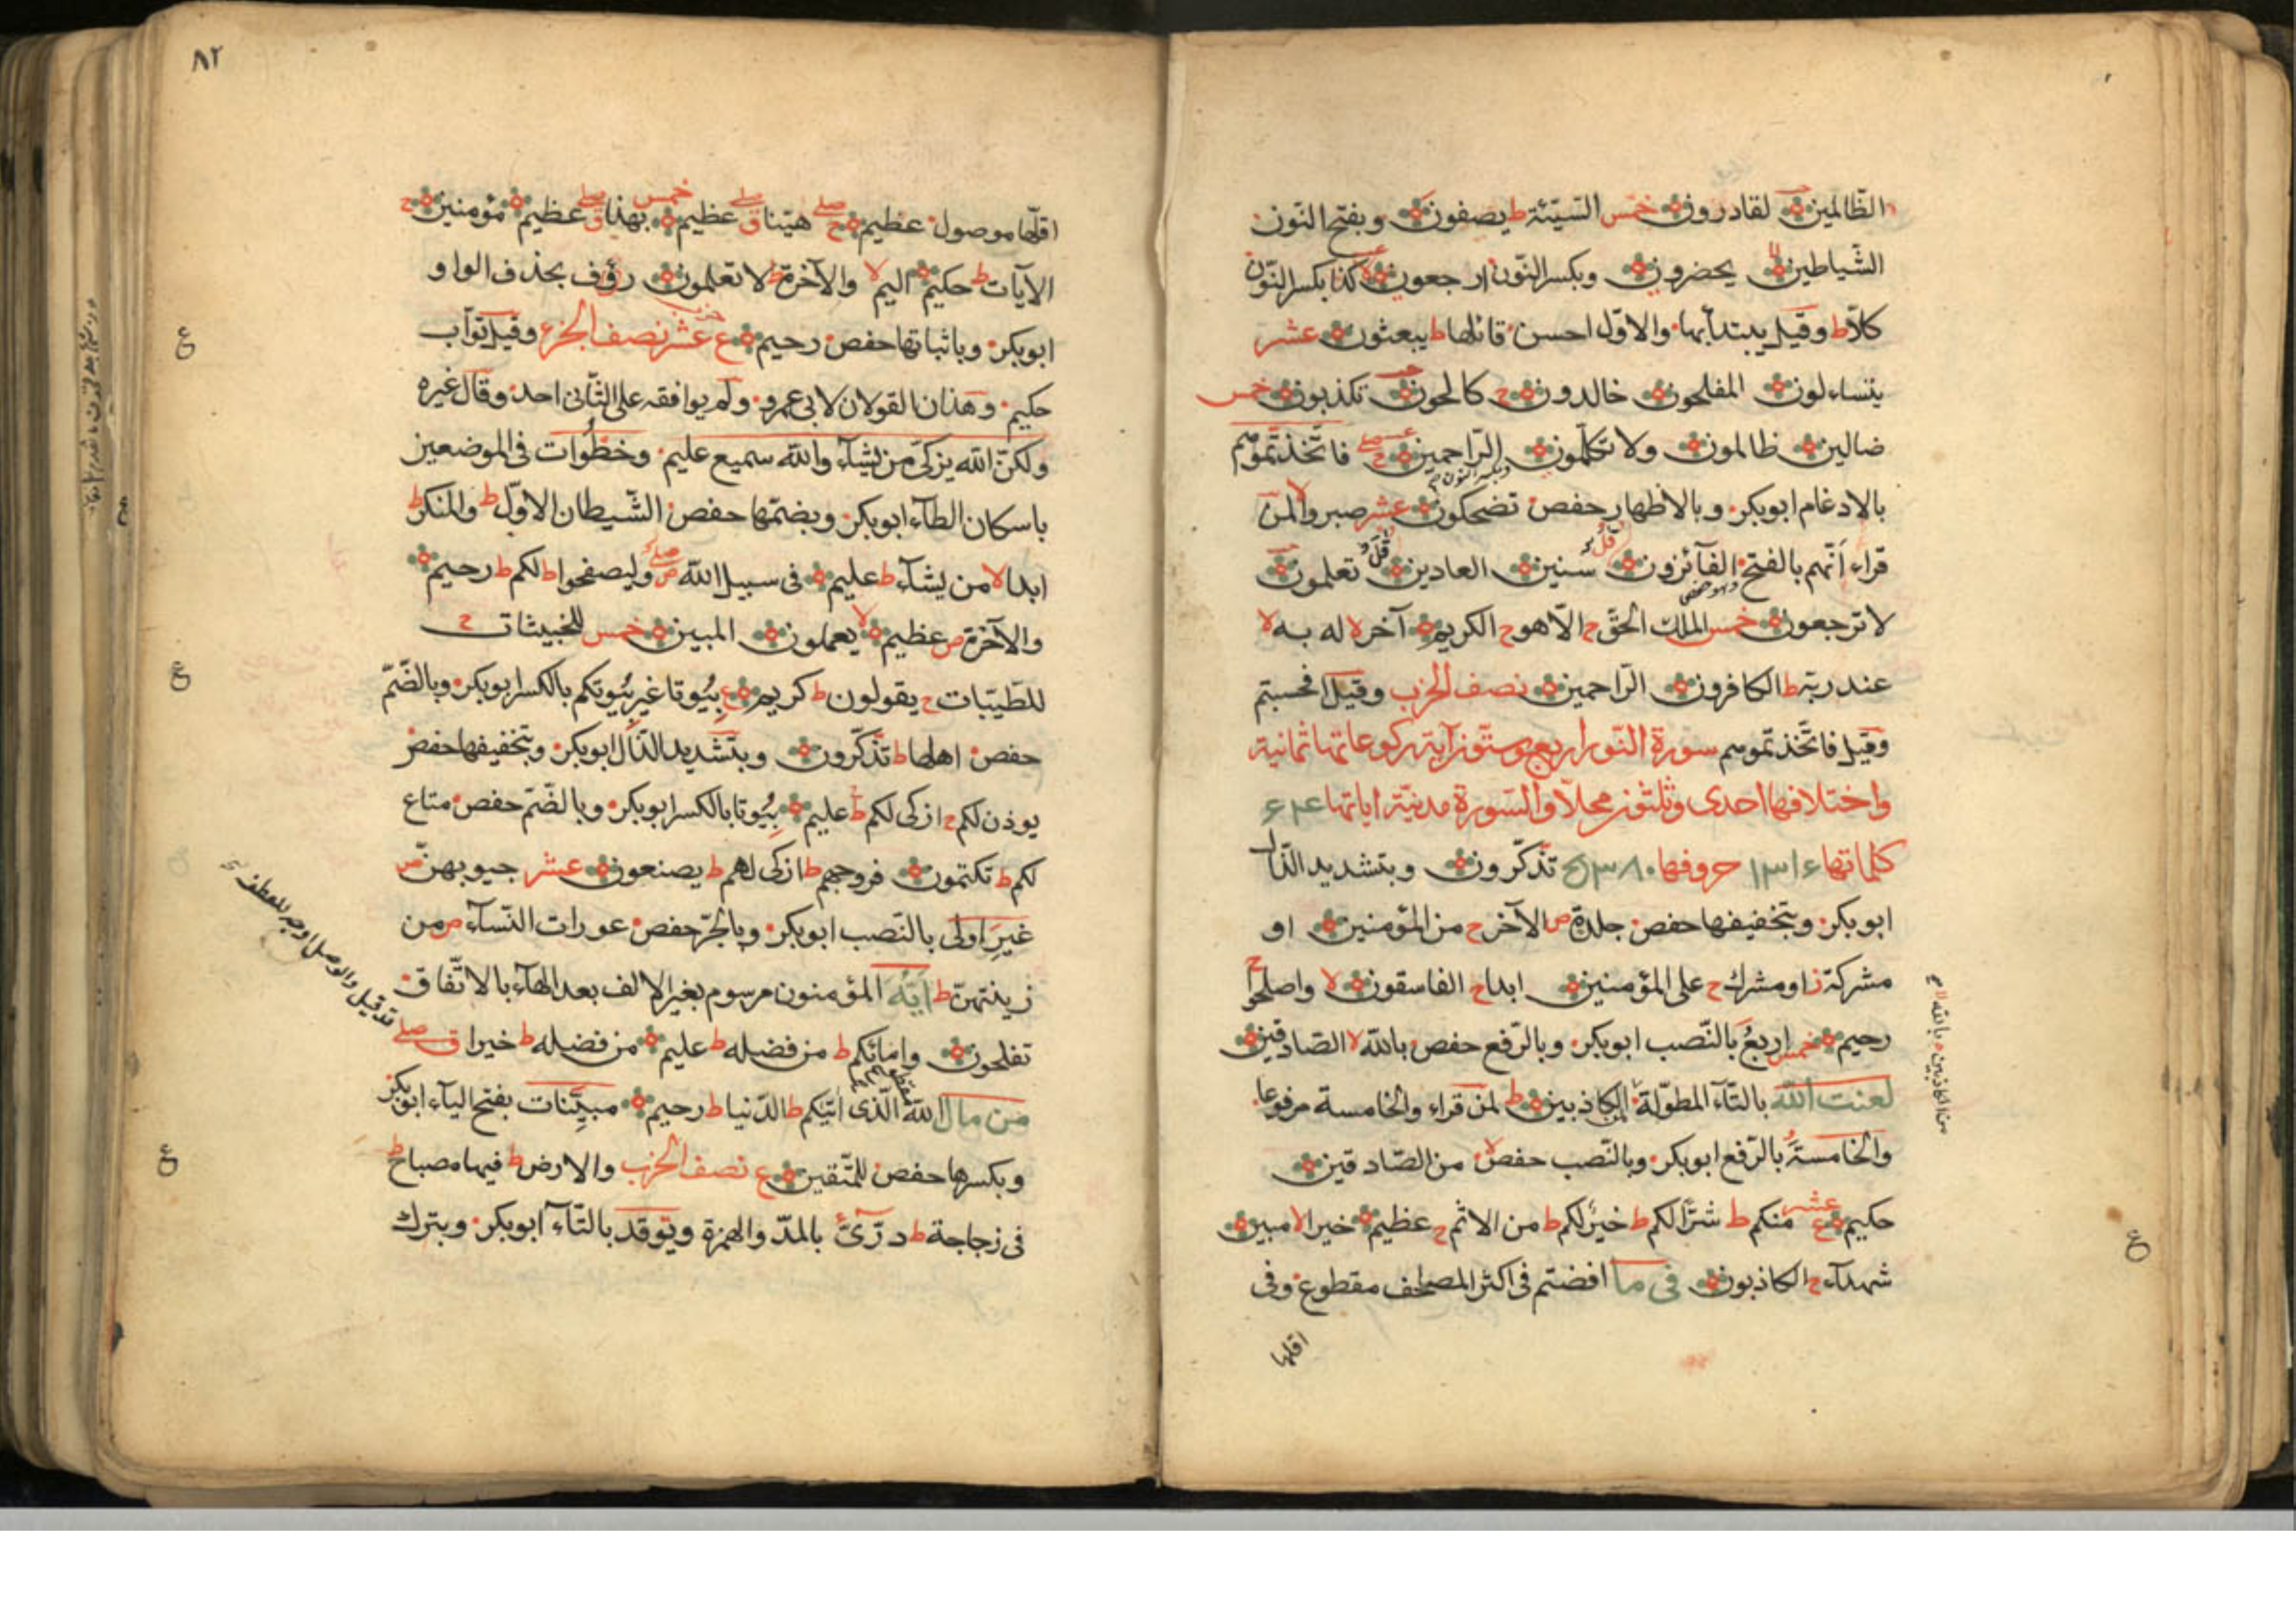 الظّالمين لقادرون خمس السّيّئة ط يصفون وبفتح النّون
الشّياطين لا يحضرون وبكسر النّون ارجعون لا كذا بكسر النّون
كلّا ط وقيل يبتدأ بها والاوّل احسن قائلها ط يبعثون عشر
يتساءلون المفلحون خالدون ج كالحون تكذبون خمس
ضالين ظالمون ولا تكلّمون الرّاحمين فاتّخذتّموهم
بالادغام ابوبكر وبالاظهار حفص تضحكون عشر صبروا لا لمن
قراء اَنّهم بالفتح الفآئزون سنين العادين تعلمون
وهو حفص
لا ترجعون خمس الملك الحقّ ج الّا هو ج الكريم آخر لا له به لا
عند ربّه ط الكافرون الرّاحمين نصف الحزب وقيل افحسبتم
وقيل فاتّخذتّموهم سورة النّور اربع وستّون آية ركوعاتها ثمانية
واختلافها احدى وثلثون محلّا والسّورة مدنيّة اياتها ٤٦
كلماتها ١٣١٤ حروفها تذكّرون وبتشديد الذّال
ابوبكر وبتخفيفها حفص جلدة ص الآخر ج من المؤمنين او
مشركة ز او مشرك ج على المؤمنين ابدا ج الفاسقون لا واصلحوا ج
رحيم خمس اربعُ بالنّصب ابوبكر وبالرّفع حفص بالله لا الصّادقين
لعنت الله بالتّآء المطوّلة الكاذبين ط لمن قراء والخامسة مرفوعا
والخامسةُ بالرّفع ابوبكر وبالنّصب حفص لا من الصّادقين
حكيم ع عشر منكم ط شرّا لكم ط خيرٌ لكم ط من الاثم ج عظيم خيرا لا مبين
شهدآء ج الكاذبون فى ما افضتم فى اكثر المصاحف مقطوع وفى
اقلها
من الكاذبين بالله لا
ع
٨٢
اقلّها موصول عظيم ج صلے هيّنا ق صلے عظيم خمس بهذا ق صلے عظيم مؤمنين ج
الآيات ط حكيم اليم لا والآخرة ط لا تعلمون رؤف بحذف الواو
ابوبكر وباثباتها حفص رحيم ع عشر نصف الجزء وقيل توّاب
حكيم وهذان القولان لابى عمرو ولم يوافقه على الثّانى احد وقال غيره
ولكنّ الله يزكّى من يشآء والله سميع عليم وخطُوات فى الموضعين
باسكان الطّآء ابوبكر وبضمّها حفص الشّيطان الاوّل ط والمنكر ط
ابدا لا من يشآء ط عليم فى سبيل الله ص صلے وليصفحوا ط لكم ط رحيم
والآخرة ص عظيم لا يعملون المبين خمس للخبيثات ج
للطّيّبات ج يقولون ط كريم ع بِيُوتا غير بِيُوتكم بالكسر ابوبكر وبالضّمّ
حفص اهلها ط تذكّرون وبتشديد الذّال ابوبكر وبتخفيفها حفص
يوذن لكم ج ازكى لكم ط عليم بِيُوتا بالكسر ابوبكر وبالضّمّ حفص متاع
لكم ط تكتمون فروجهم ط ازكى لهم ط يصنعون عشر جيوبهنّ ص
غيرَ اولى بالنّصب ابوبكر وبالجرّ حفص عورات النّسآء ص من
زينتهنّ ط ايّه المؤمنون مرسوم بغير الالف بعد الهآء بالاتّفاق
تفلحون وامائكم ط من فضله ط عليم من فضله ط خيرا ق صلے
من مال الله الّذى اتيكم ط الدّنيا ط رحيم مبيَّنات بفتح اليآء ابوبكر
وبكسرها حفص للمتّقين ع نصف الحزب والارض ط فيها مصباح ط
فى زجاجة ط درّىٌّ بالمدّ والهمزة وتوقد بالتّآء ابوبكر وبترك
قد قيل والوصل اوجه للعطف
ع
ع
ع